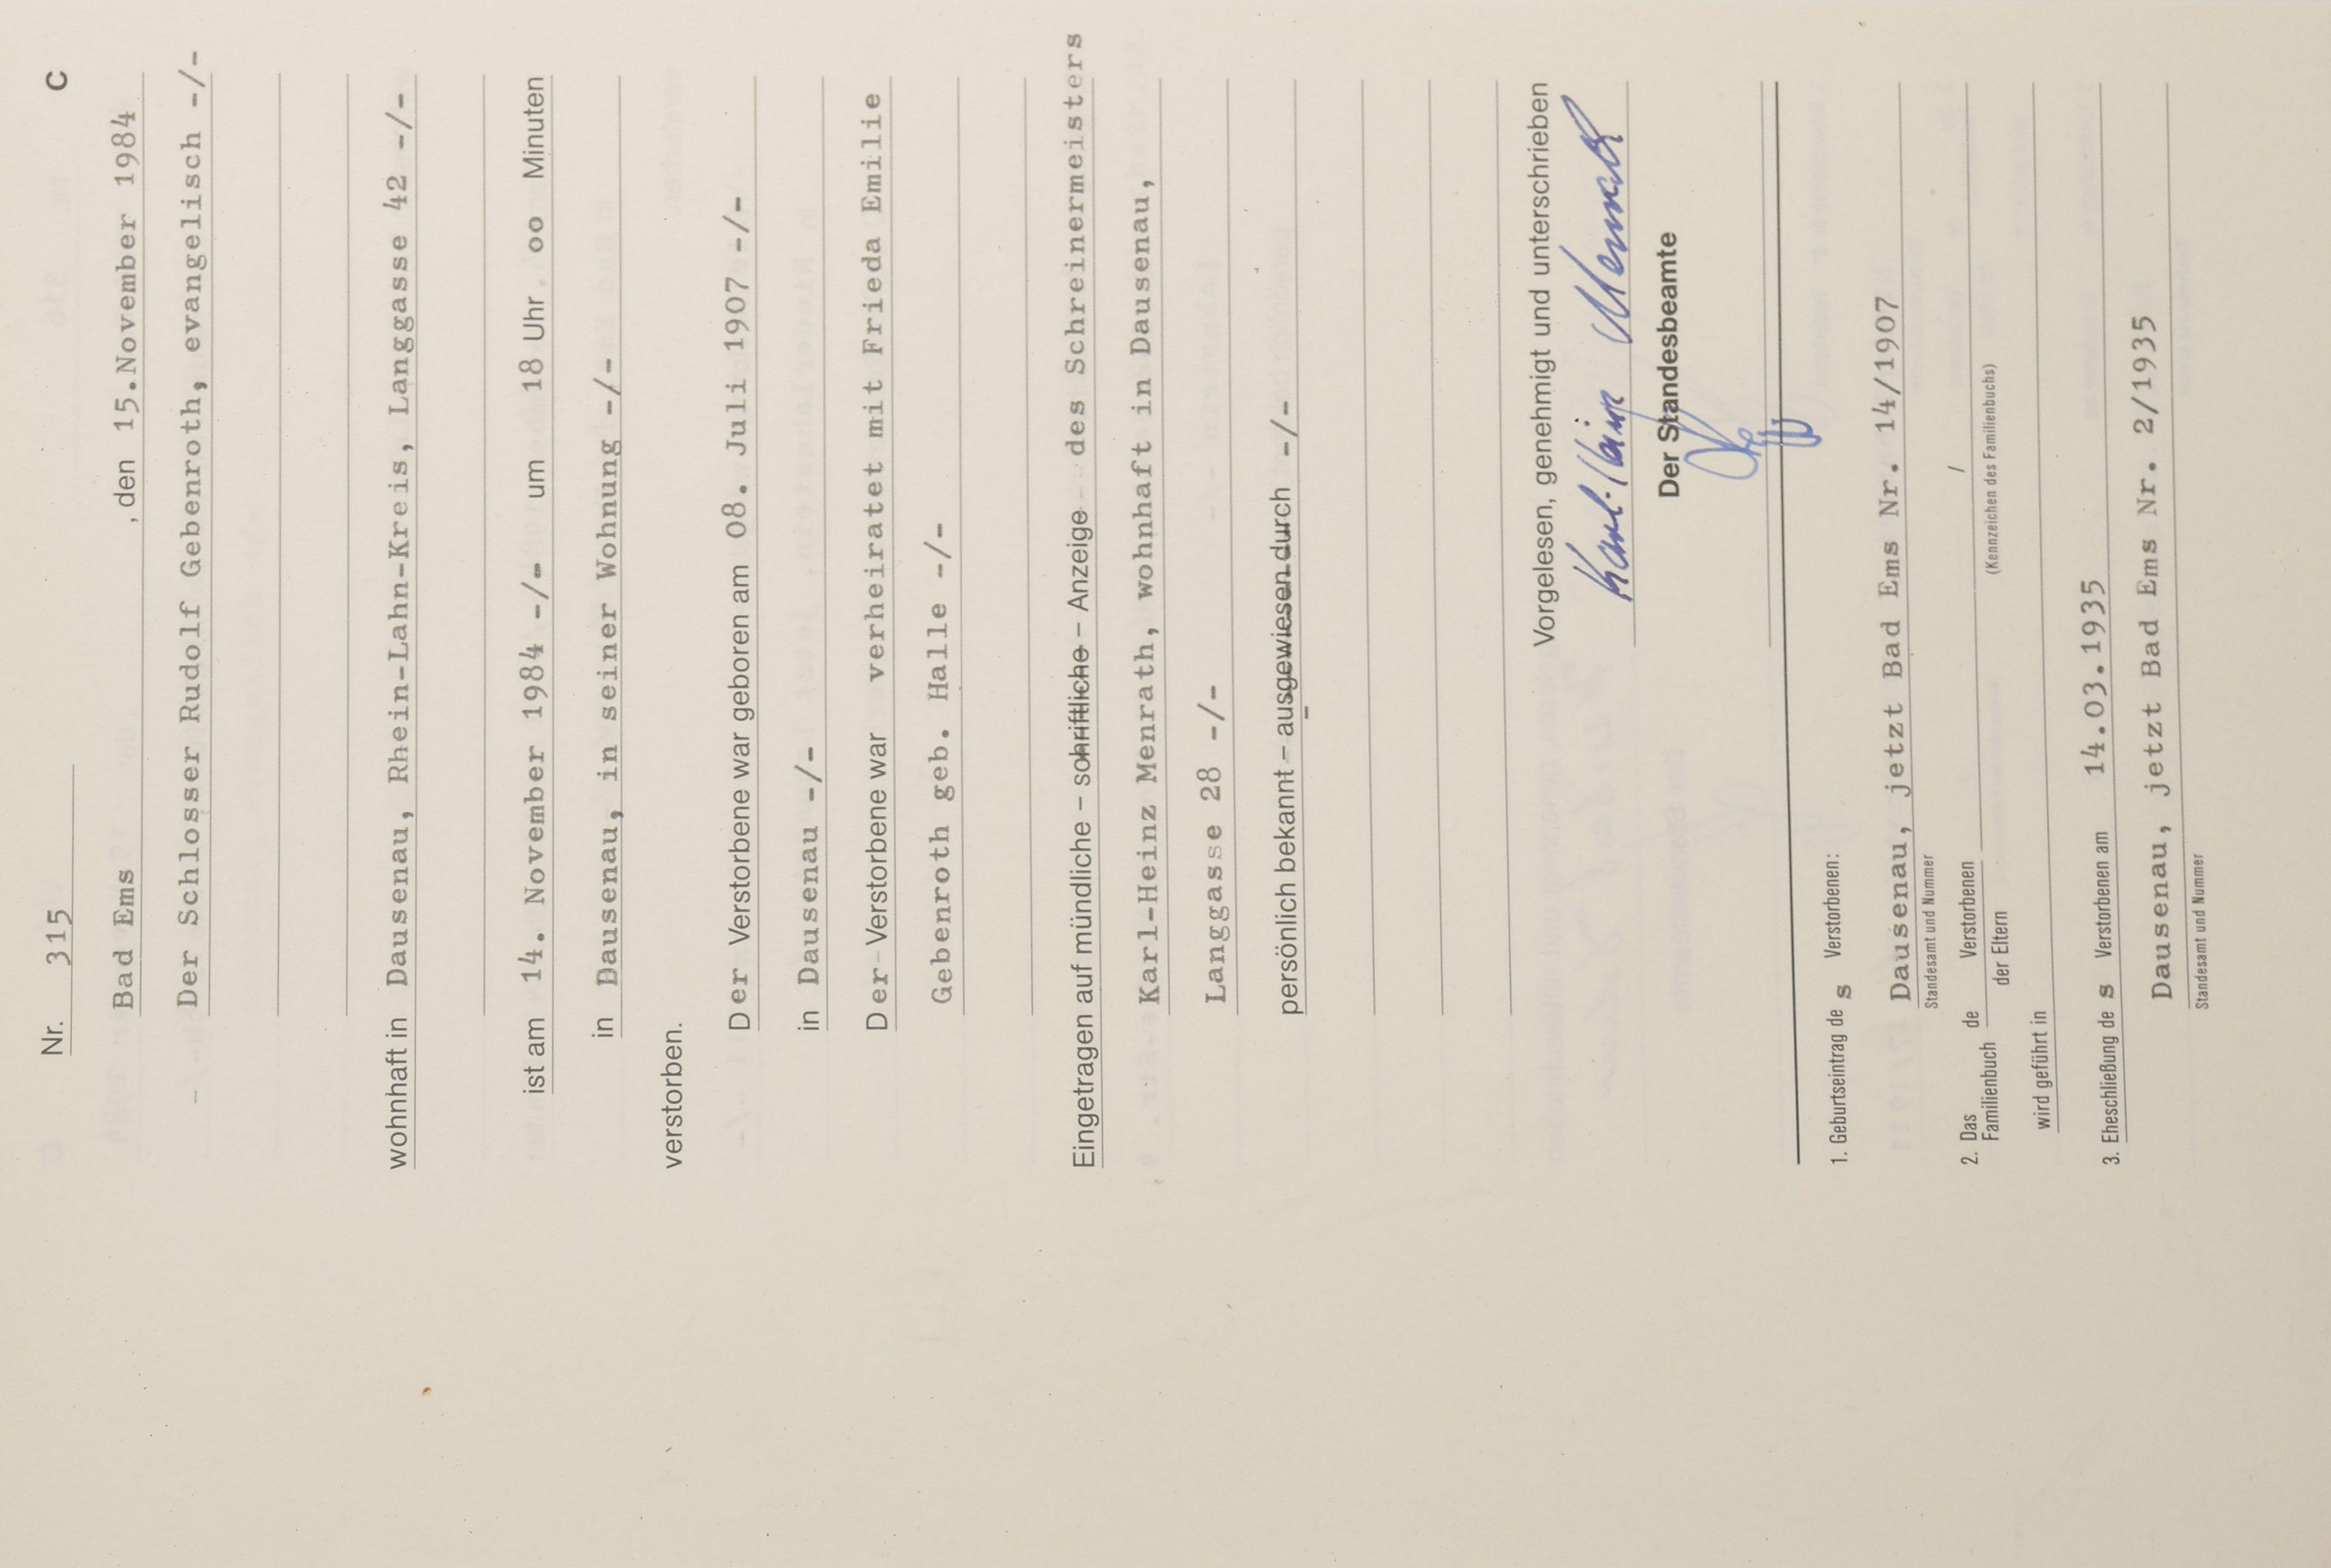 Nr. 315 C
Bad Ems , den 15.November 1984
Der Schlosser Rudolf Gebenroth, evangelisch -/-
wohnhaft in Dausenau, Rhein-Lahn-Kreis, Langgasse 42 -/-
ist am 14. November 1984 -/- um 18 Uhr oo Minuten
in Dausenau, in seiner Wohnung -/-
verstorben.
Der Verstorbene war geboren am 08. Juli 1907 -/-
in Dausenau -/-
Der Verstorbene war verheiratet mit Frieda Emilie
Gebenroth geb. Halle -/-
Eingetragen auf mündliche – schriftliche – Anzeige des Schreinermeisters
Karl-Heinz Menrath, wohnhaft in Dausenau,
Langgasse 28 -/-
persönlich bekannt – ausgewiesen durch -/-
Vorgelesen, genehmigt und unterschrieben
Karl-Heinz Menrath
Der Standesbeamte
1. Geburtseintrag des Verstorbenen:
Dausenau, jetzt Bad Ems Nr. 14/1907
Standesamt und Nummer
2. Das Familienbuch de Verstorbenen /
der Eltern (Kennzeichen des Familienbuchs)
wird geführt in
3. Eheschließung des Verstorbenen am 14.03.1935
Dausenau, jetzt Bad Ems Nr. 2/1935
Standesamt und Nummer